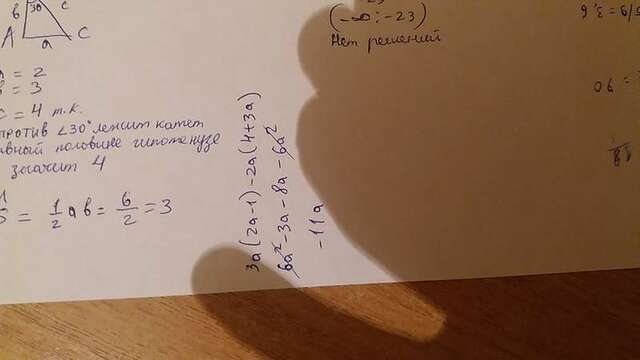 3a(2a-1)-2a(4+3a)
6a²-3a-8a-6a²
-11a
A
B
C
a
c
b
30
a = 2
b = 3
c = 4 т.к.
против ∠30° лежит катет
равный половине гипотенузе
значит 4
S = 1/2 ab = 6/2 = 3
(-∞; -23)
Нет решений
= 90